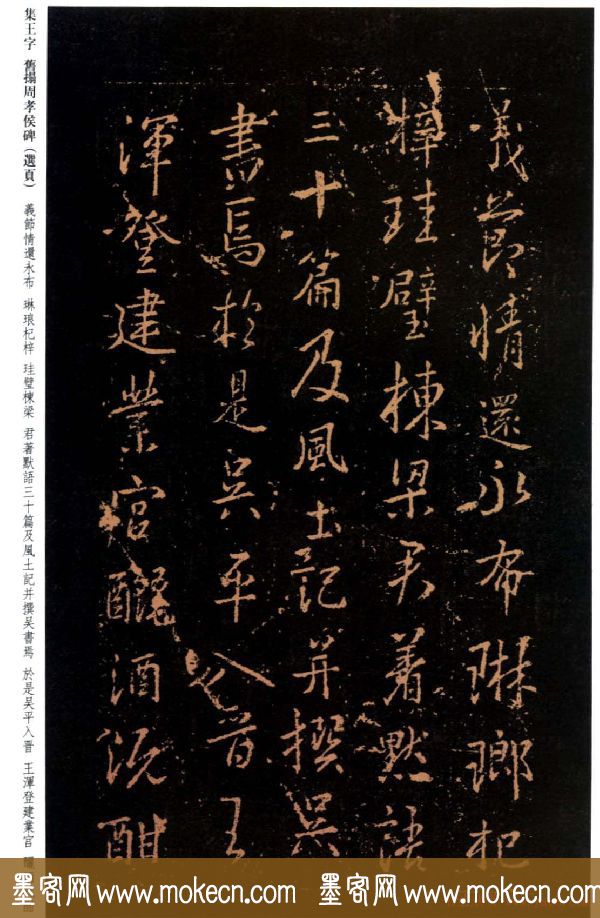 集王字 舊搨周孝侯碑（選頁） 義節情還永布 琳琅杞梓 珪璧棟梁 君著默語三十篇及風土記并撰吴書焉 於是吴平入晋 王渾登建業宫
義節情還永布琳瑯杞
梓珪璧棟梁君著默語
三十篇及風土記并撰吴
書焉於是吴平入晋王
渾登建業宫釃酒既酣
墨客网 www.mokecn.com 墨客网 www.mokecn.com